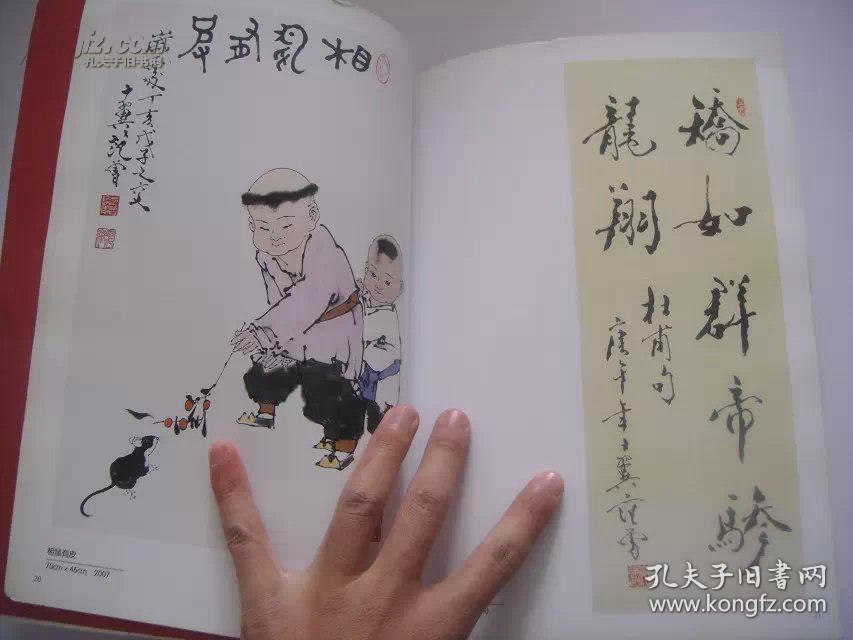 相鼠有皮
岁次丁亥戊子之交
十翼范曾
相鼠有皮
70cm x 46cm 2007
20
矯如群帝驂
龍翔
杜甫句
庚午年十翼范曾
孔夫子旧书网
孔夫子旧书网
www.kongfz.com